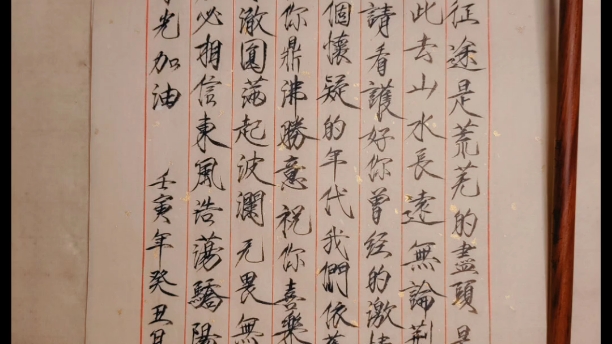 征途是荒蕪的盡頭是
此去山水長遠無論荊
請看護好你曾經的激情
個懷疑的年代我們依舊
你鼎沸勝意祝你喜樂
澈圓滿起波瀾无畏無
必相信東風浩蕩驕陽
光加油
壬寅年癸丑月